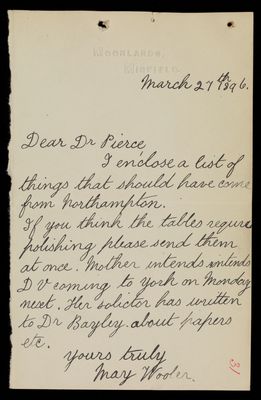 WOODLANDS,
March 27th 1896.
Dear Dr Pierce
I enclose a list of
things that should have come
from Northampton.
If you think the tables require
polishing please send them
at once. Mother intends intends
D V coming to York on Monday
next. Her solictor has written
to Dr Bayley about papers
etc.
yours truly
May Wooler.